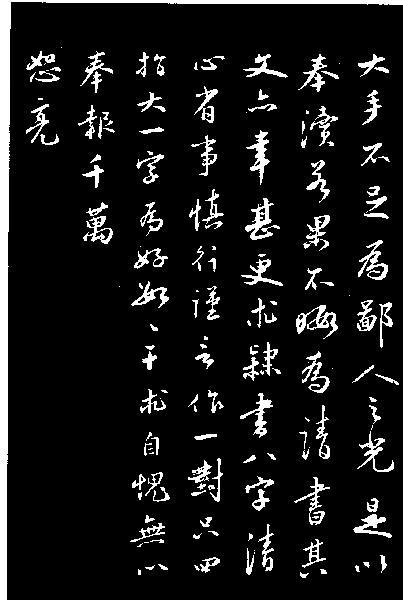 大手不足為鄙人之光是以
奉瀆若果不晦為請書其
文亦幸甚更求隸書八字清
心省事慎行謹言作一對只四
指大一字為好數〻干求自愧無以
奉報千萬
恕亮